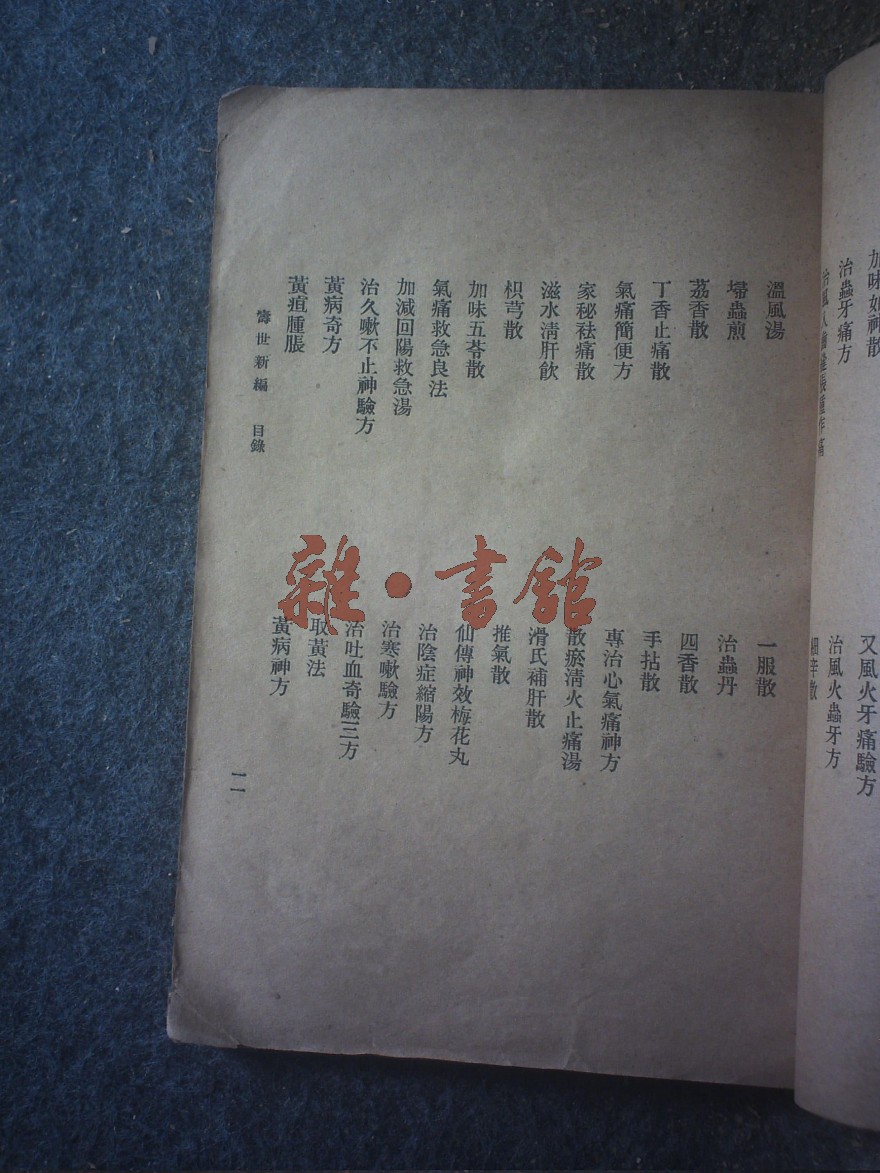 加味如神散
治蟲牙痛方
又風火牙痛驗方
治風火蟲牙方
細辛散
溫風湯
掃蟲煎
荔香散
丁香止痛散
氣痛簡便方
家秘祛痛散
滋水清肝飲
枳芎散
加味五苓散
氣痛救急良法
加減回陽救急湯
治久嗽不止神驗方
黃病奇方
黃疸腫脹
一服散
治蟲丹
四香散
手拈散
專治心氣痛神方
散瘀清火止痛湯
滑氏補肝散
推氣散
仙傳神效梅花丸
治陰症縮陽方
治寒嗽驗方
治吐血奇驗三方
取黃法
黃病神方
壽世新編 目錄
一一
雜·書館